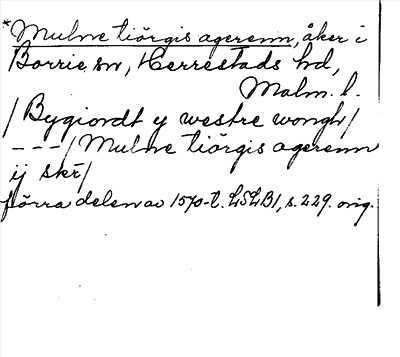 *Mulne tiörgis agerenn, åker i
Borrie sn, Herrestads hd,
Malm. l.
/Bygiordt y westre wongh/
---/Mulne tiörgis agerenn
ij skr/
förra delen av 1570-t. LSLB1, s. 229. orig.